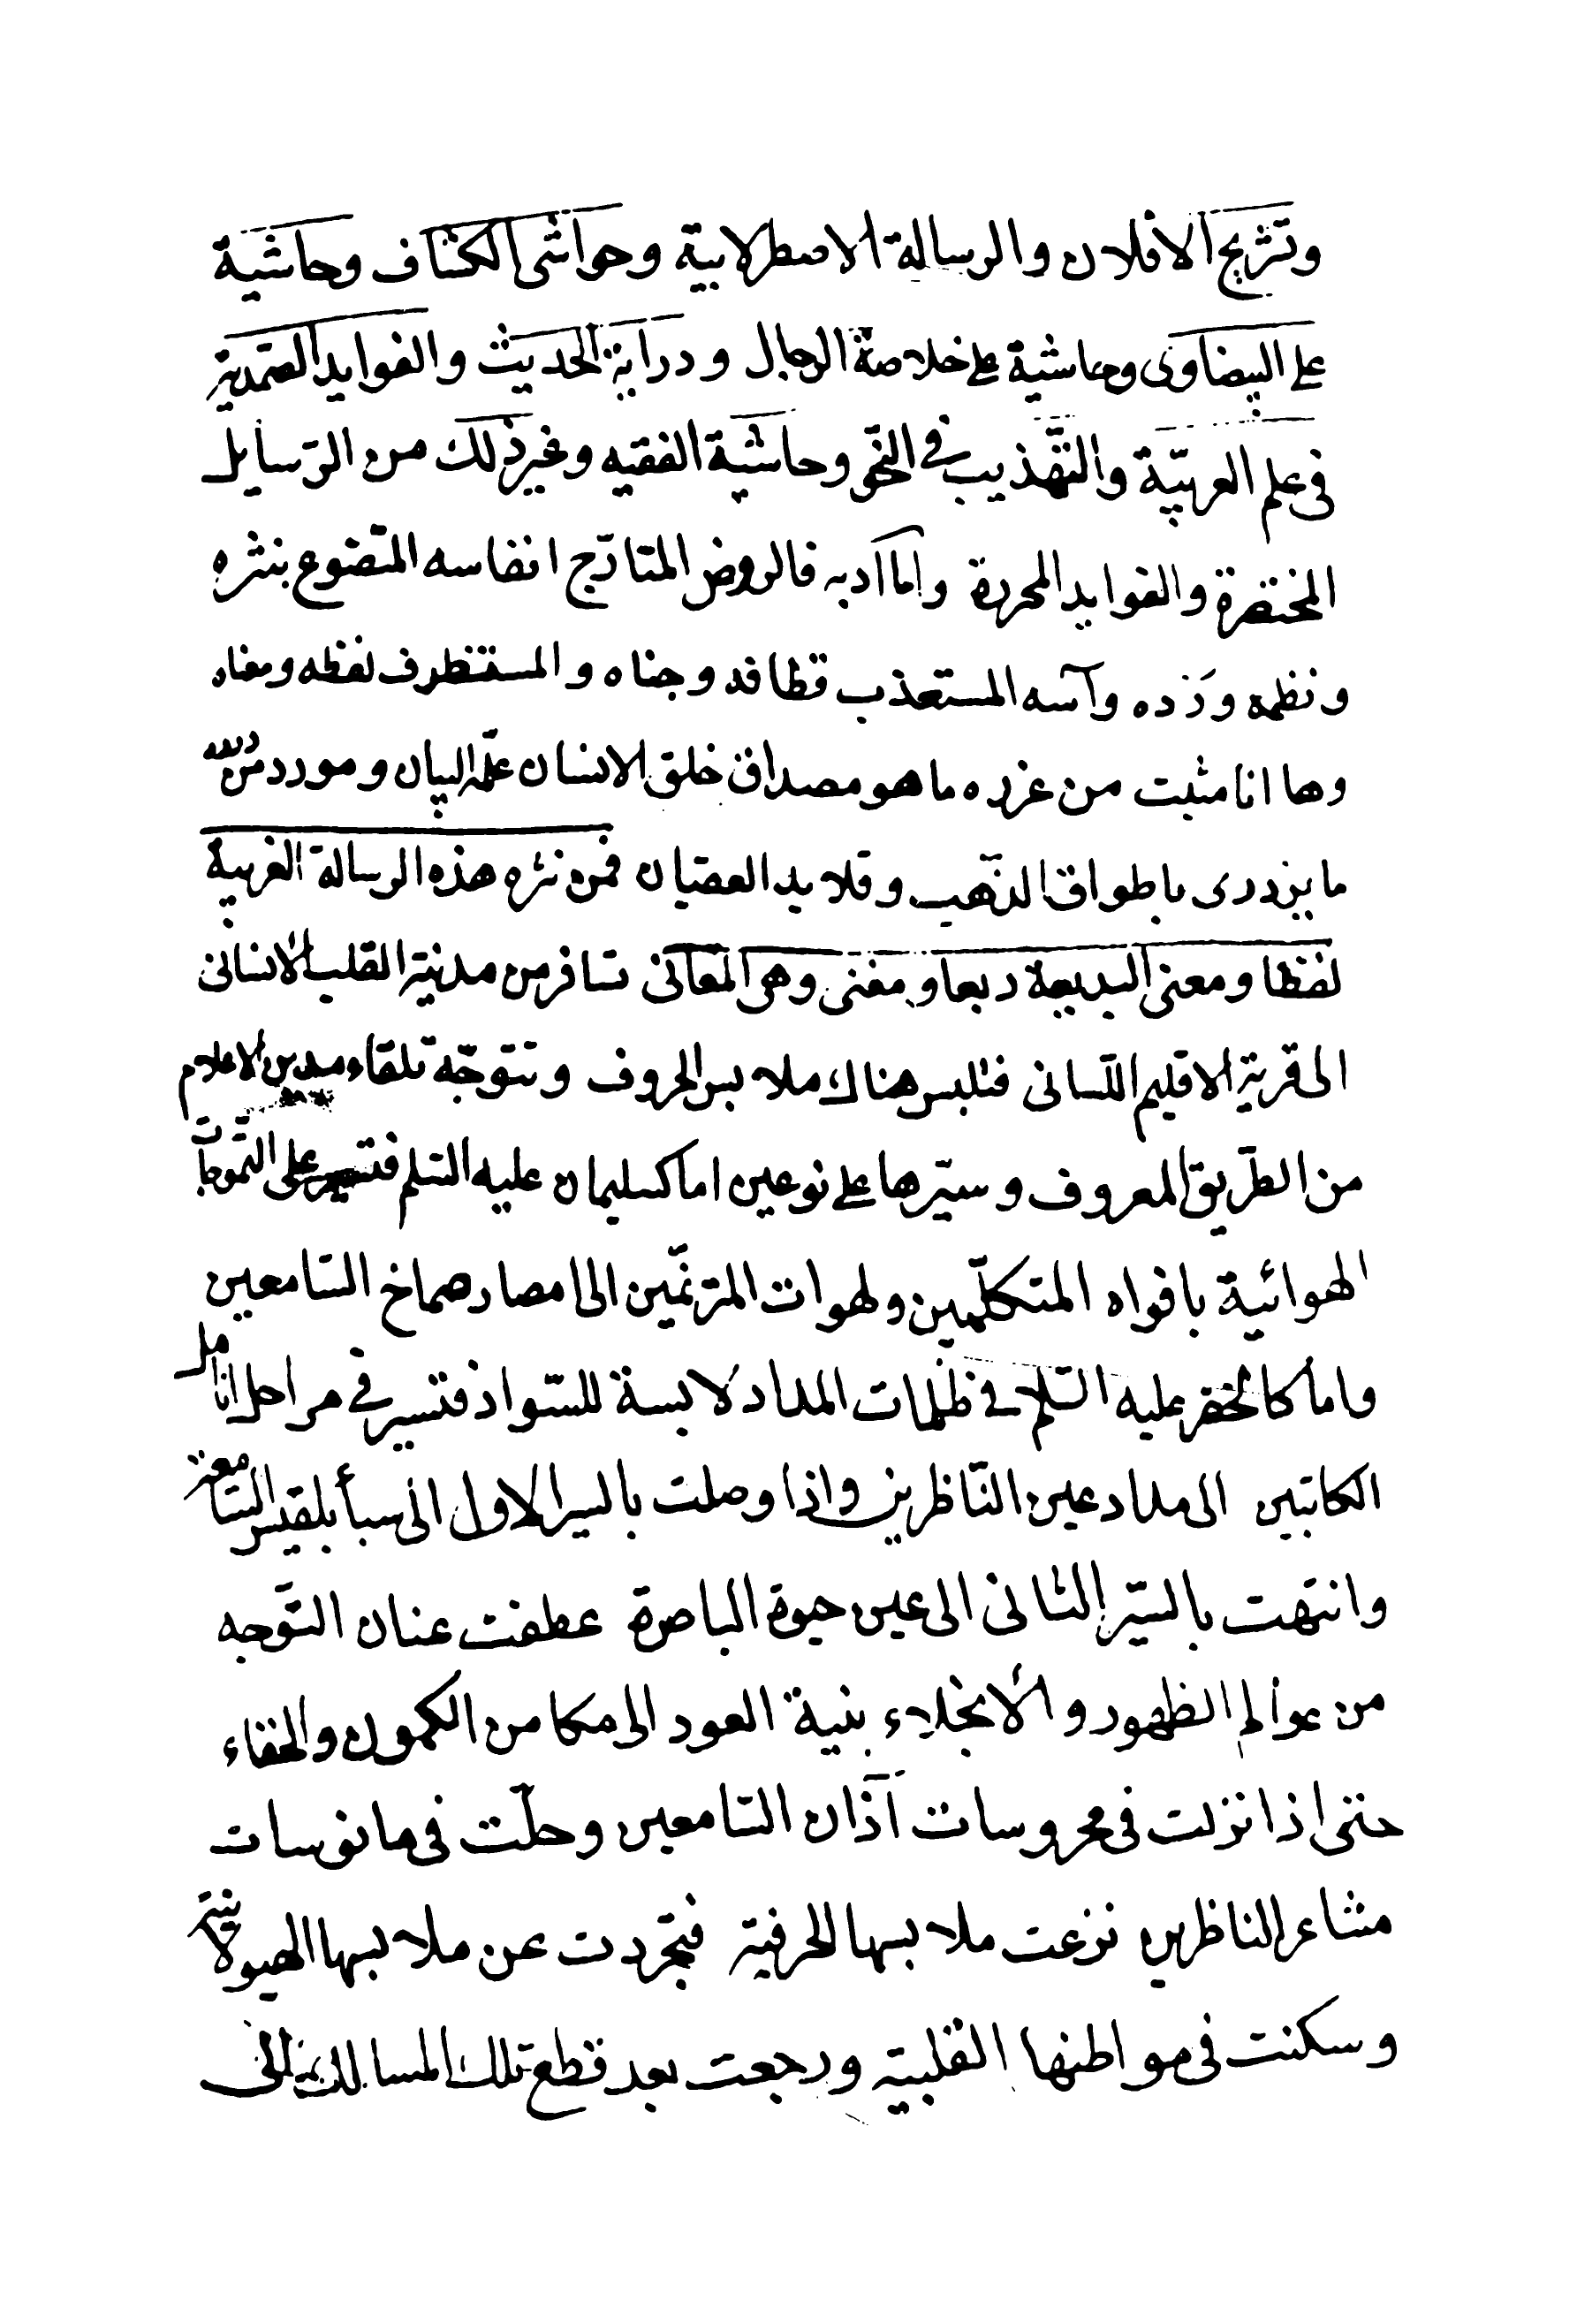 وتشريح الافلاك والرسالة الاصطرلابية وحواشى الكشاف وحاشية
على البيضاوى وحاشية على خلاصة الرجال ودراية الحديث والفوايد الصمدية
فى علم العربية والتهذيب فى النحو وحاشية الفقيه وغير ذلك من الرسايل
المختصرة والفوايد المحررة واما أدبه فالروض المتارّج انفاسه المتضوع بنثره
ونظمه ورده وآسه المستعذب قطافه وجناه والمستظرف لفظه ومعناه
وها انا مثبت من غرره ما هو مصداق خلق الانسان علمه البيان ومورد من
ما يزدرى باطواق الذهب وقلايد العقيان فمن نثره هذه الرسالة الغريبة
لفظا ومعنى البديعة ربعا ومغنى وهى المعانى تسافر من مدينة القلب الانسانى
الى قرية الاقليم اللسانى فتلبس هناك ملابس الحروف وتتوجّه تلقاء مدين الاعلام
من الطّريق المعروف وسيرها على نوعين اما كسليمان عليه السّلم فتسير على التّموجات
الهوائية بافواه المتكلّمين ولهوات المترنمّين الى امصار صماخ السّامعين
واما كالخضر عليه السّلم فى ظلمات المداد لابسة للسّواد فتسير فى مراحل انامل
الكاتبين الى مداد عين النّاظرين واذا وصلت بالسير الاول الى سبأ بلقيس السّامعة
وانتهت بالسّير الثانى الى عين حيوة الباصرة عطفت عنان التّوجه
من عوالم الظهور والانجلاء بنية العود الى مكامن الكمون والخفاء
حتى اذا نزلت فى محروسات آذان السّامعين وحلّت فى مانوسات
مشاعر الناظرين نزعت ملابسها الحرفية فتجردت عن ملابسها الهيولانية
وسكنت فى مواطنها القلبية ورجعت بعد قطع تلك المسالك الى